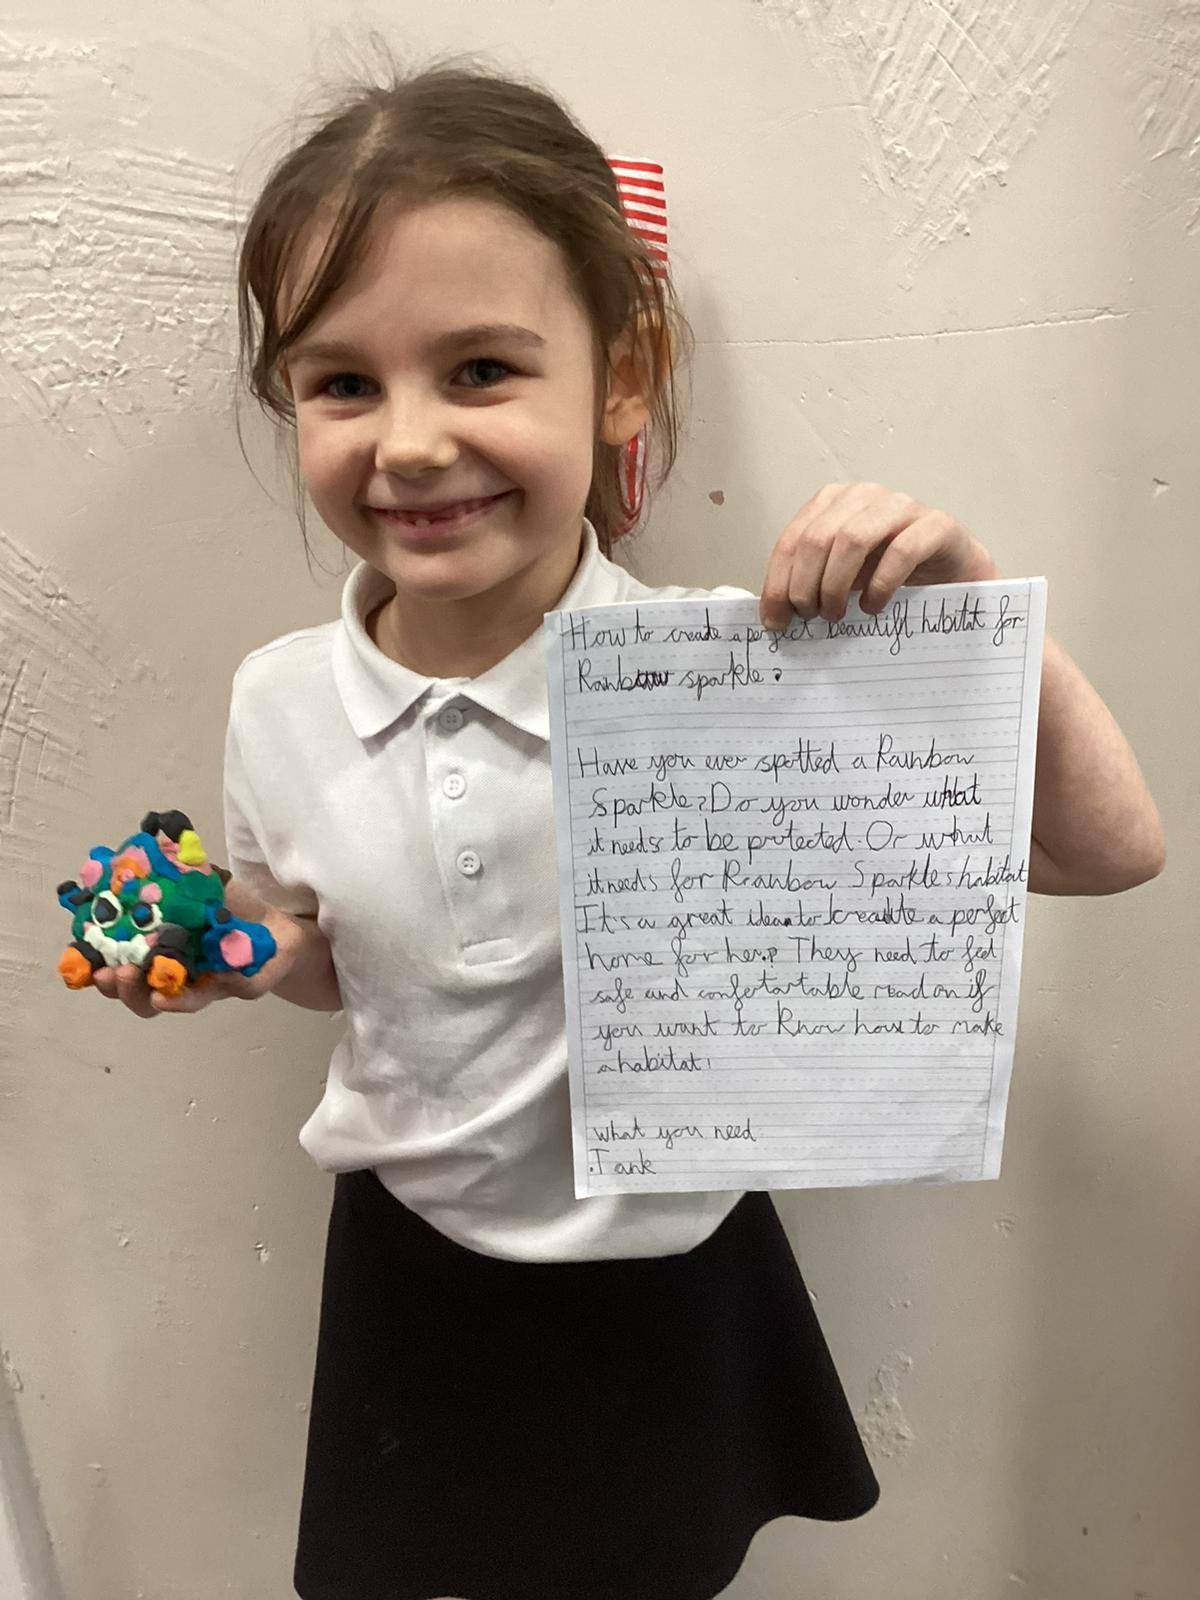 How to create a perfect beautifl habitat for
Rainbow sparkle?
Have you ever spotted a Rainbow
Sparkle? Do you wonder what
it needs to be protected. Or what
it needs for Rainbow Sparkles habitat
It's a great idea to create a perfect
home for her? They need to feel
safe and confortartable read on if
you want to know how to make
a habitat!
what you need
.Tank